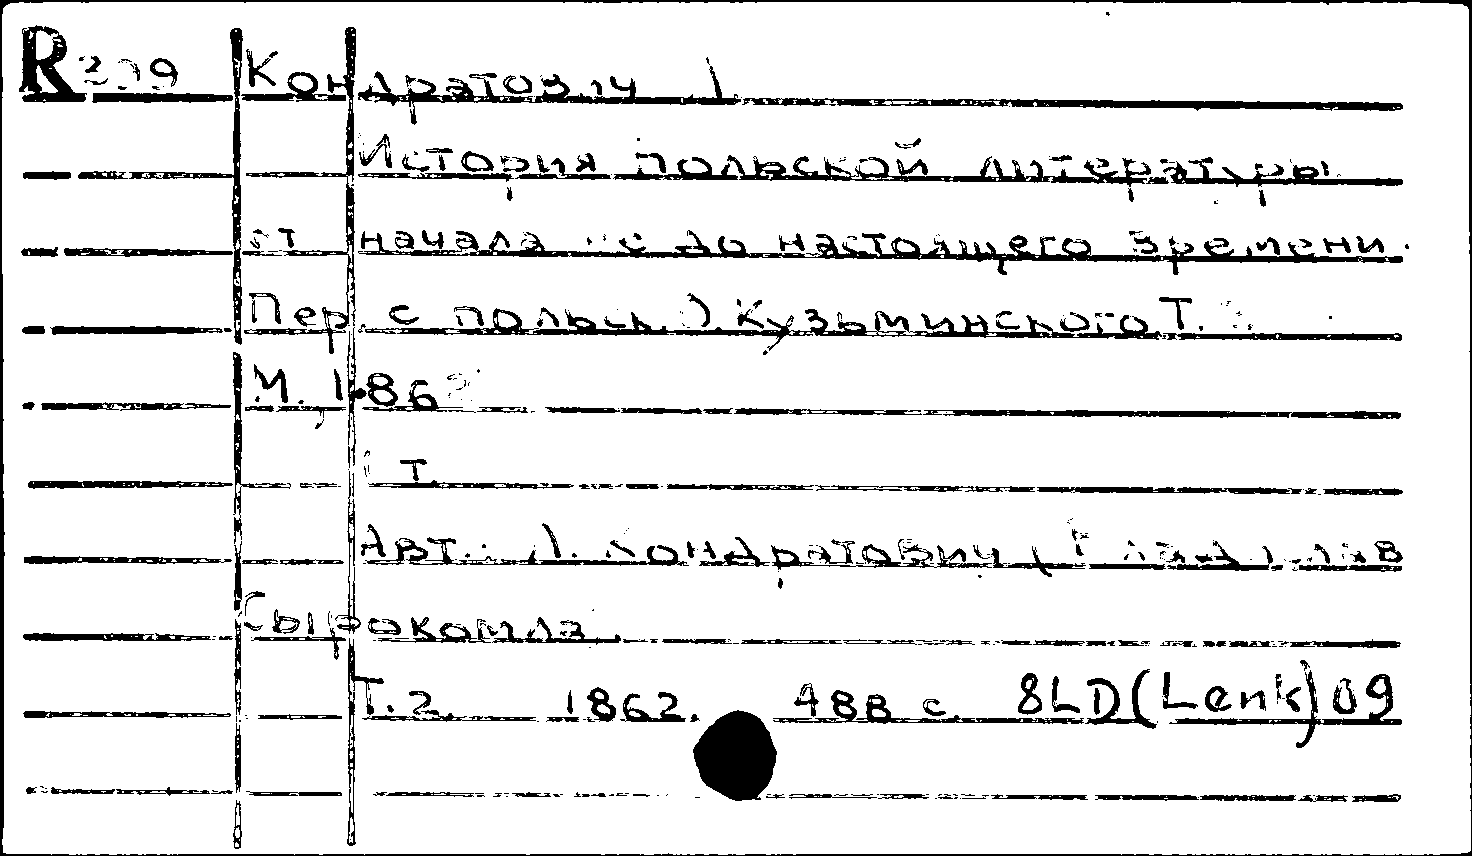 Кондратович Л.
История польской литературы
от начала ее до настоящего времени.
Пер. с польск. О. Кузьминского. Т.
М., 1862
т.
Авт.: Л. Кондратович (Владислав
Сырокомля).
Т. 2. 1862. 488 с. 8LD(Lenk)09